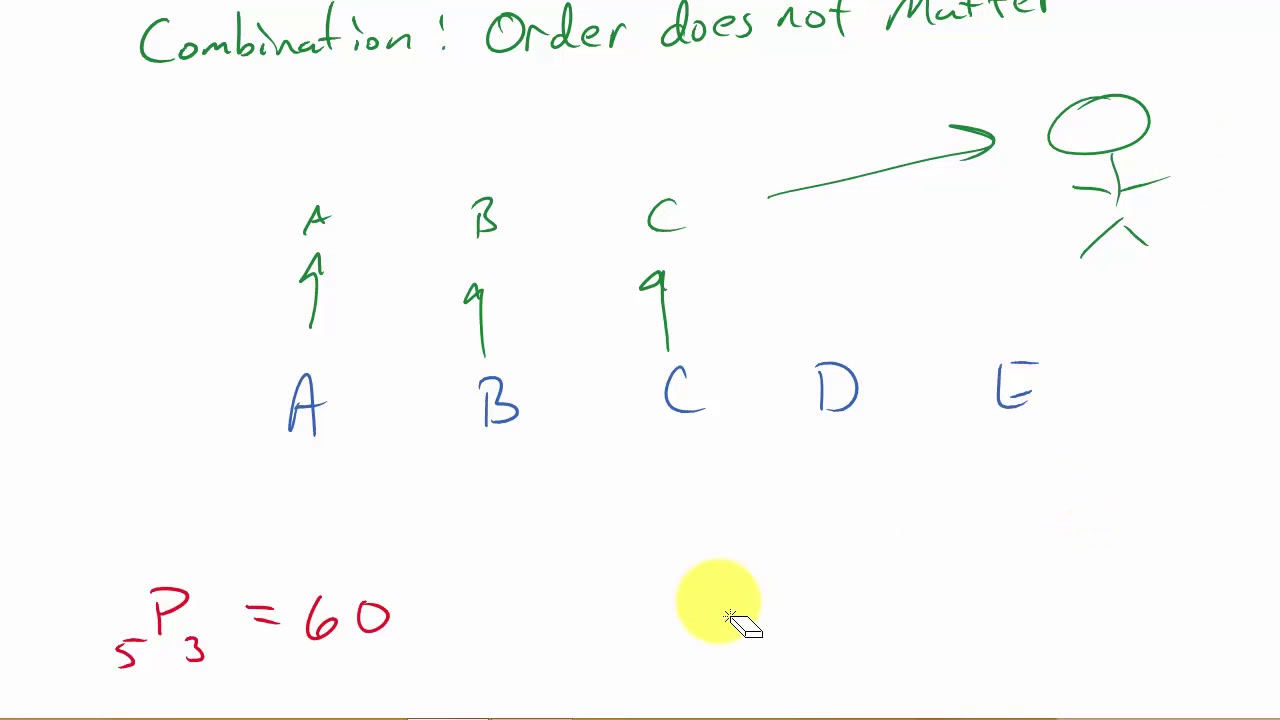 Combination: Order does not Matter
A B C
A B C D E
5P3 = 60